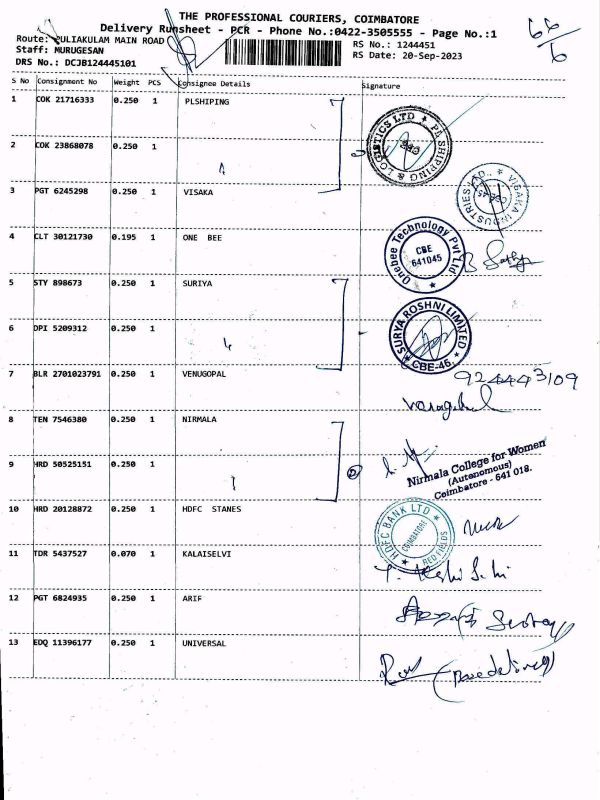 THE PROFESSIONAL COURIERS, COIMBATORE
Delivery Runsheet - PCR - Phone No.:0422-3505555 - Page No.:1
Route: PULIAKULAM MAIN ROAD
RS No.: 1244451
Staff: MURUGESAN
RS Date: 20-Sep-2023
DRS No.: DCJB124445101
66/6
S No Consignment No Weight PCS Consignee Details Signature
1 COK 21716333 0.250 1 PLSHIPING
PA SHIPPING & LOGISTICS LTD
2 COK 23868078 0.250 1
3 PGT 6245298 0.250 1 VISAKA
VISAKA INDUSTRIES LTD.,
4 CLT 30121730 0.195 1 ONE BEE
Onebee Technology Pvt Ltd
CBE
641045
5 STY 898673 0.250 1 SURIYA
6 DPI 5209312 0.250 1
SURYA ROSHNI LIMITED
CBE-45.
7 BLR 2701023791 0.250 1 VENUGOPAL
9244443109
8 TEN 7546380 0.250 1 NIRMALA
Nirmala College for Women
(Autonomous)
Coimbatore - 641 018.
9 HRD 50525151 0.250 1
10 HRD 20128872 0.250 1 HDFC STANES
HDFC BANK LTD
COIMBATORE
RED FIELDS
11 TDR 5437527 0.070 1 KALAISELVI
12 PGT 6824935 0.250 1 ARIF
13 EDQ 11396177 0.250 1 UNIVERSAL